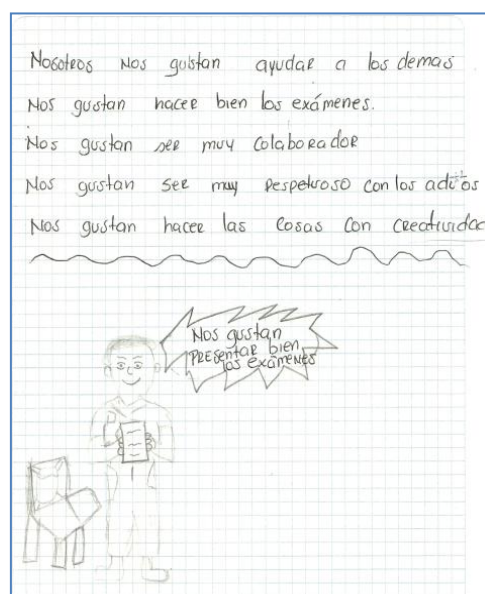 Nosotros Nos gustan ayudar a los demas
Nos gustan hacer bien los exámenes.
Nos gustan ser muy colaborador
Nos gustan ser muy respetuoso con los adultos
Nos gustan hacer las cosas con creatividad
Nos gustan
presentar bien
los exámenes